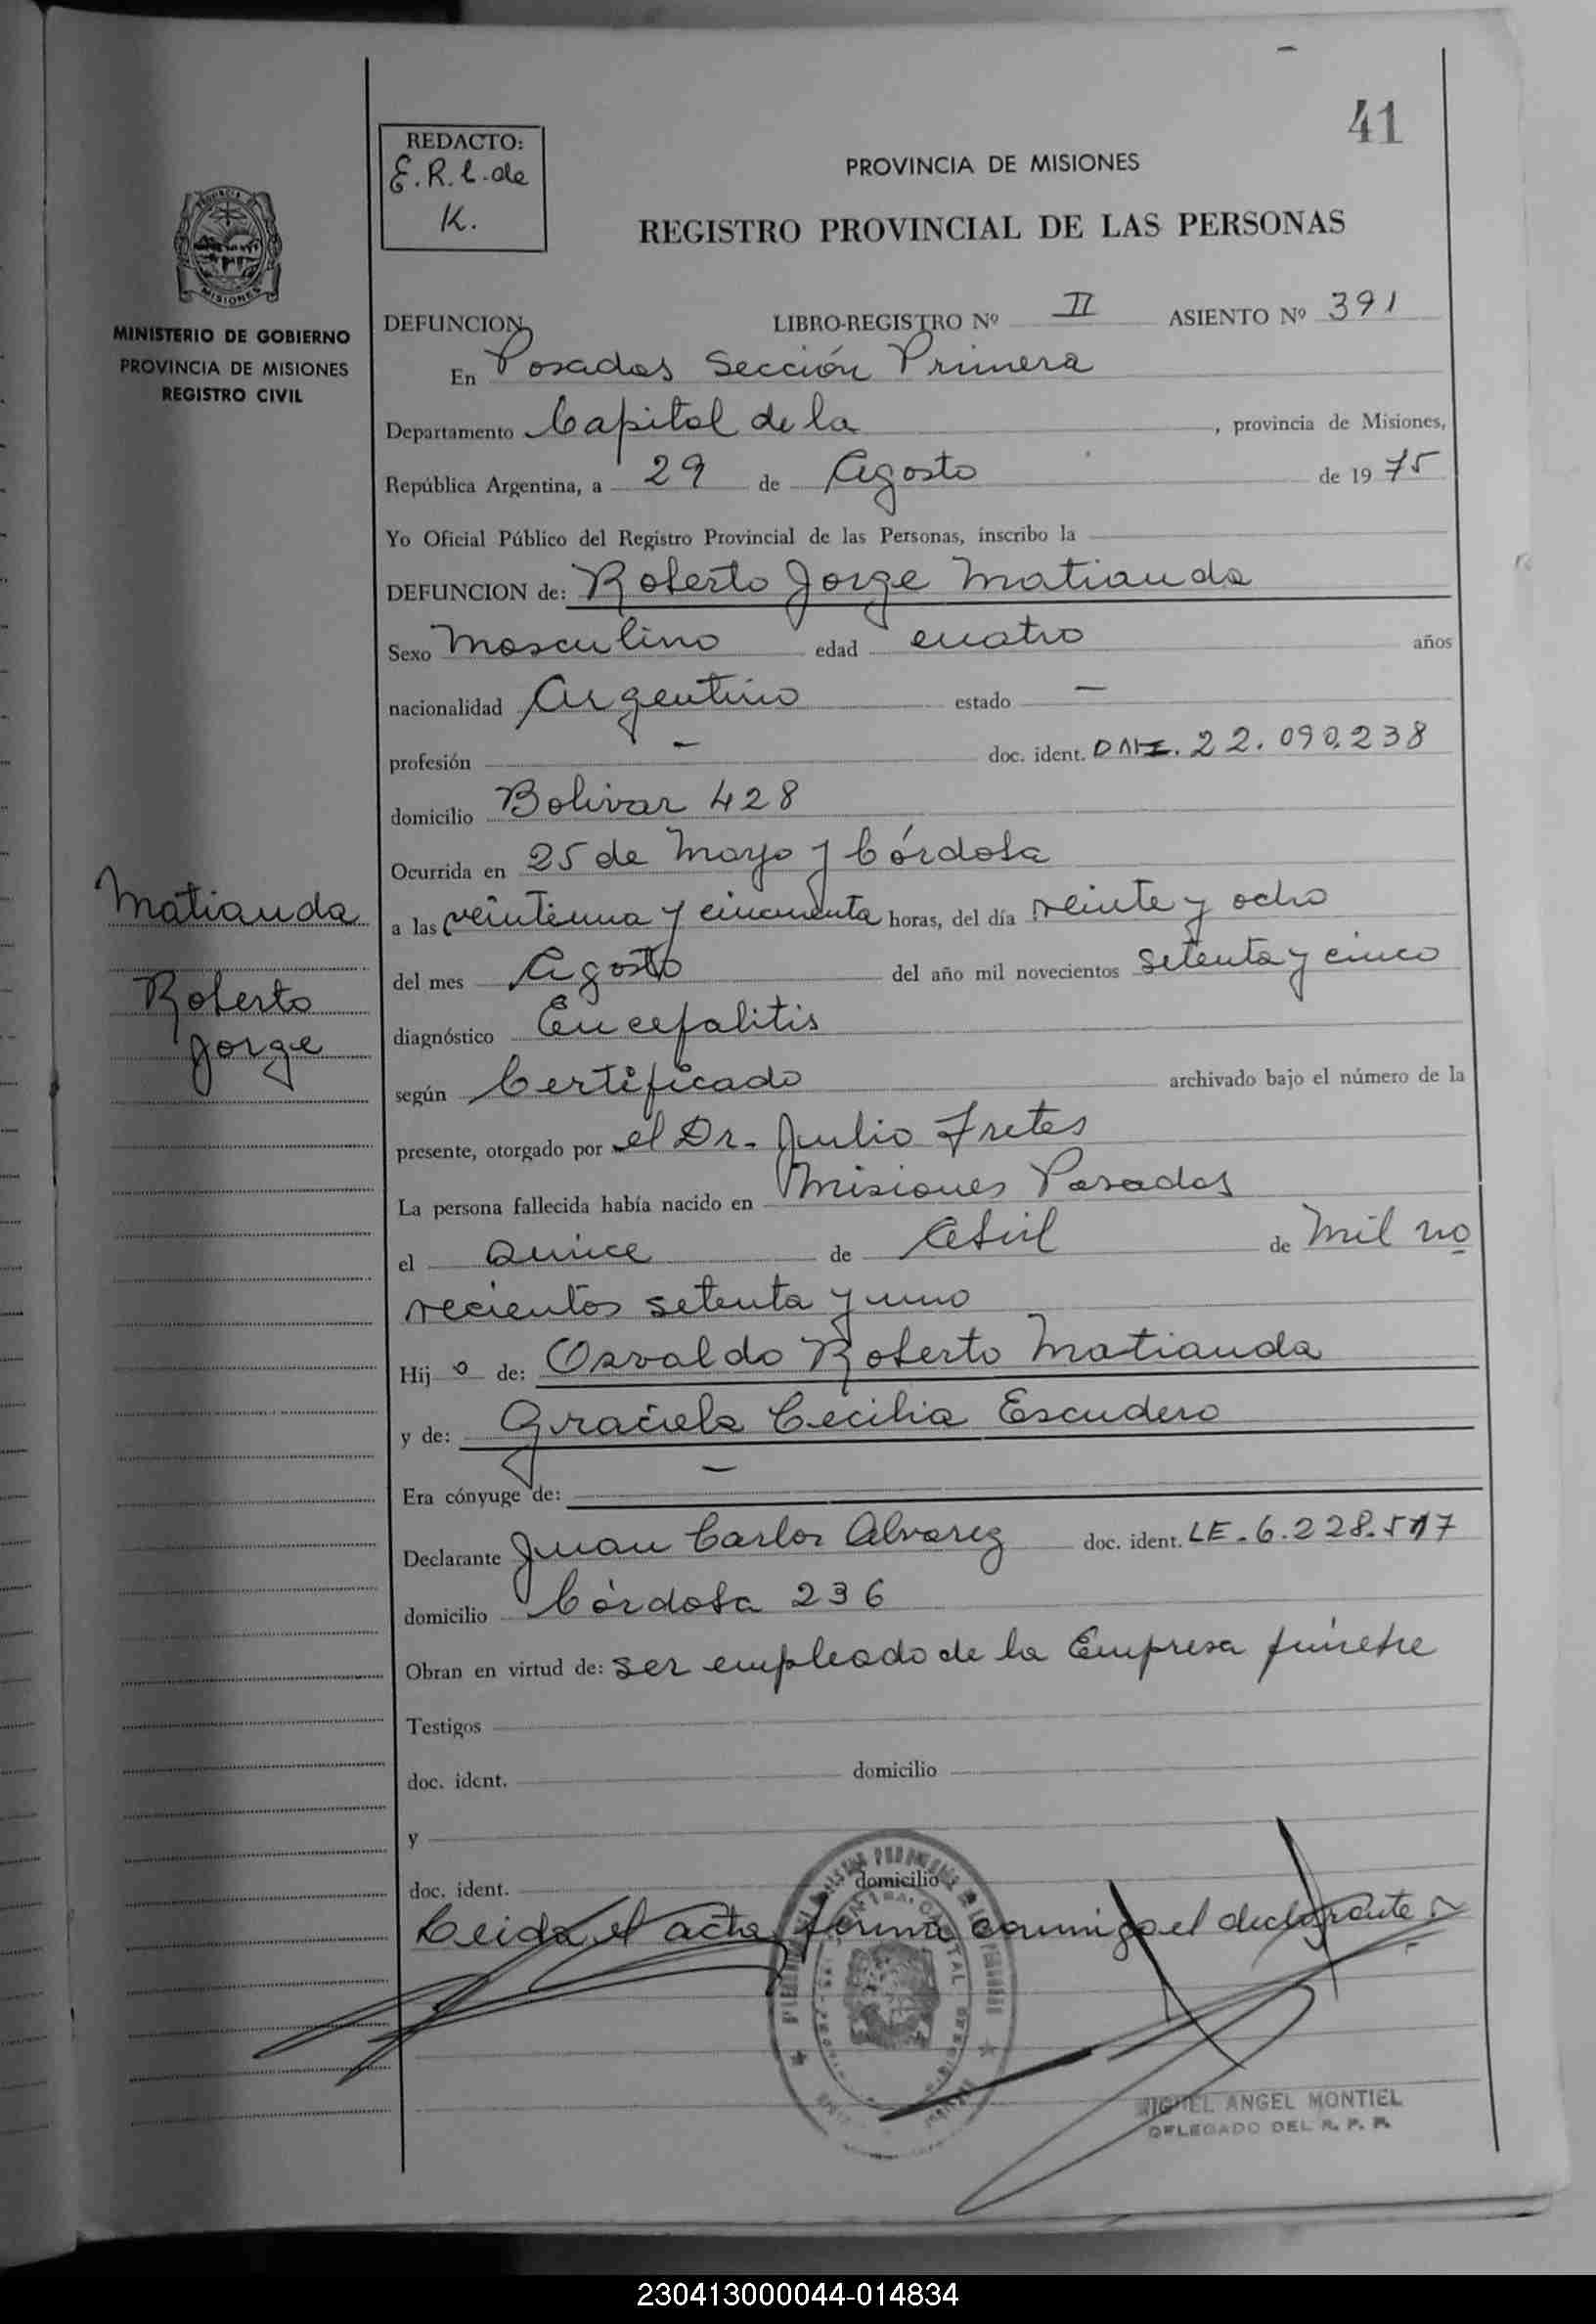 41
REDACTO:
E. R. L. de
K.
PROVINCIA DE MISIONES
REGISTRO PROVINCIAL DE LAS PERSONAS
MISIONES
MINISTERIO DE GOBIERNO
PROVINCIA DE MISIONES
REGISTRO CIVIL
DEFUNCION LIBRO-REGISTRO Nº II ASIENTO Nº 391
En Posadas Sección Primera
Departamento Capital de la , provincia de Misiones,
República Argentina, a 29 de Agosto de 1975
Yo Oficial Público del Registro Provincial de las Personas, inscribo la
DEFUNCION de: Roberto Jorge Matiauda
Sexo Masculino edad cuatro años
nacionalidad Argentino estado —
profesión — doc. ident. DNI. 22.090.238
domicilio Bolivar 428
Ocurrida en 25 de Mayo y Córdoba
Matiauda
Roberto
Jorge
a las veintiuna y cincuenta horas, del día veinte y ocho
del mes Agosto del año mil novecientos setenta y cinco
diagnóstico Encefalitis
según Certificado archivado bajo el número de la
presente, otorgado por el Dr. Julio Fretes
La persona fallecida había nacido en Misiones Posadas
el quince de Abril de mil no
vecientos setenta y uno
Hijo de: Osvaldo Roberto Matiauda
y de: Graciela Cecilia Escudero
Era cónyuge de: —
Declarante Juan Carlos Alvarez doc. ident. LE. 6.228.517
domicilio Córdoba 236
Obran en virtud de: ser empleado de la Empresa fúnebre
Testigos
doc. ident. domicilio
y
doc. ident. domicilio
Leida el acta, firma conmigo el declarante
MIGUEL ANGEL MONTIEL
DELEGADO DEL R. P. P.
230413000044-014834